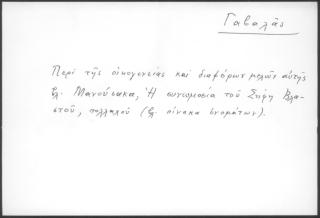 Γαβαλᾶς
Περὶ τῆς οἰκογενείας καὶ διαφόρων μελῶν αὐτῆς
βλ. Μανούσακα, Ἡ συνωμοσία τοῦ Σήφη Βλα-
στοῦ, πολλαχοῦ (βλ. πίνακα ὀνομάτων).